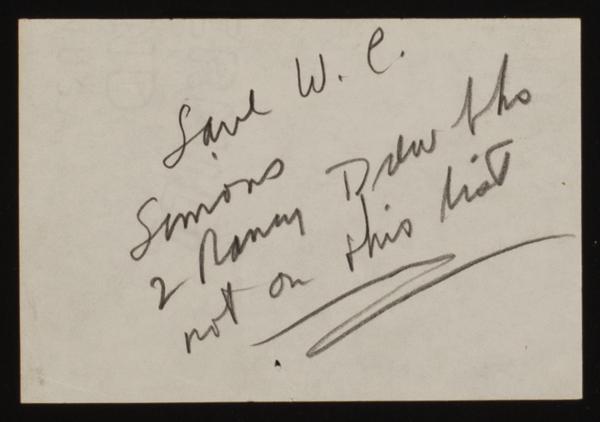 Save W. C.
Simons
2 Nancy Drew bks
not on this list